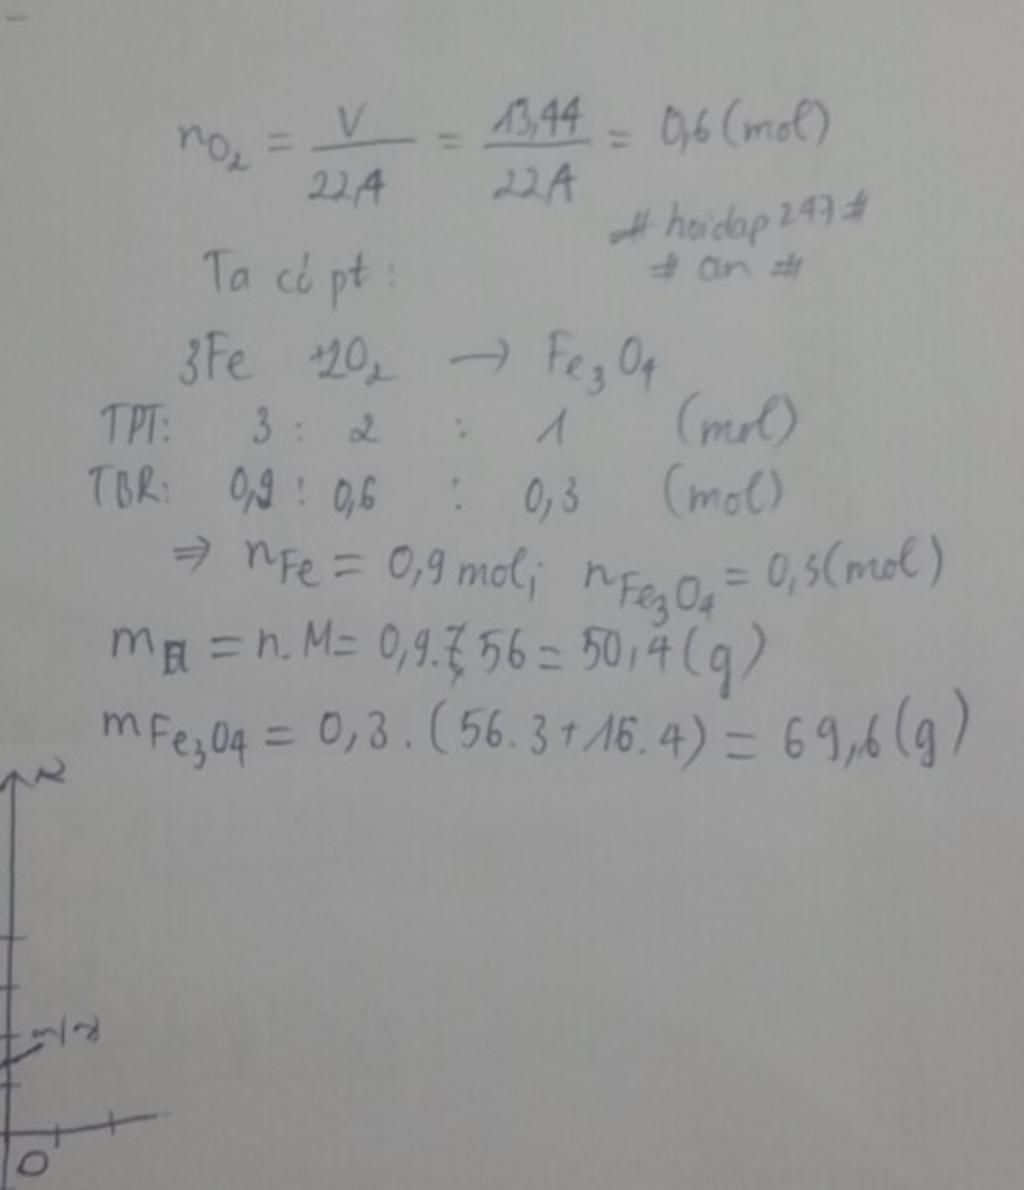 nO₂ = V/22,4 = 13,44/22,4 = 0,6 (mol)
# hoidap247 #
# an #
Ta có pt:
3Fe +2O₂ → Fe₃O₄
TPT: 3 : 2 : 1 (mol)
TBR: 0,9 : 0,6 : 0,3 (mol)
⇒ nFe = 0,9 mol; nFe₃O₄ = 0,3(mol)
m = n.M = 0,9.56 = 50,4(g)
mFe₃O₄ = 0,3.(56.3+16.4) = 69,6(g)
O